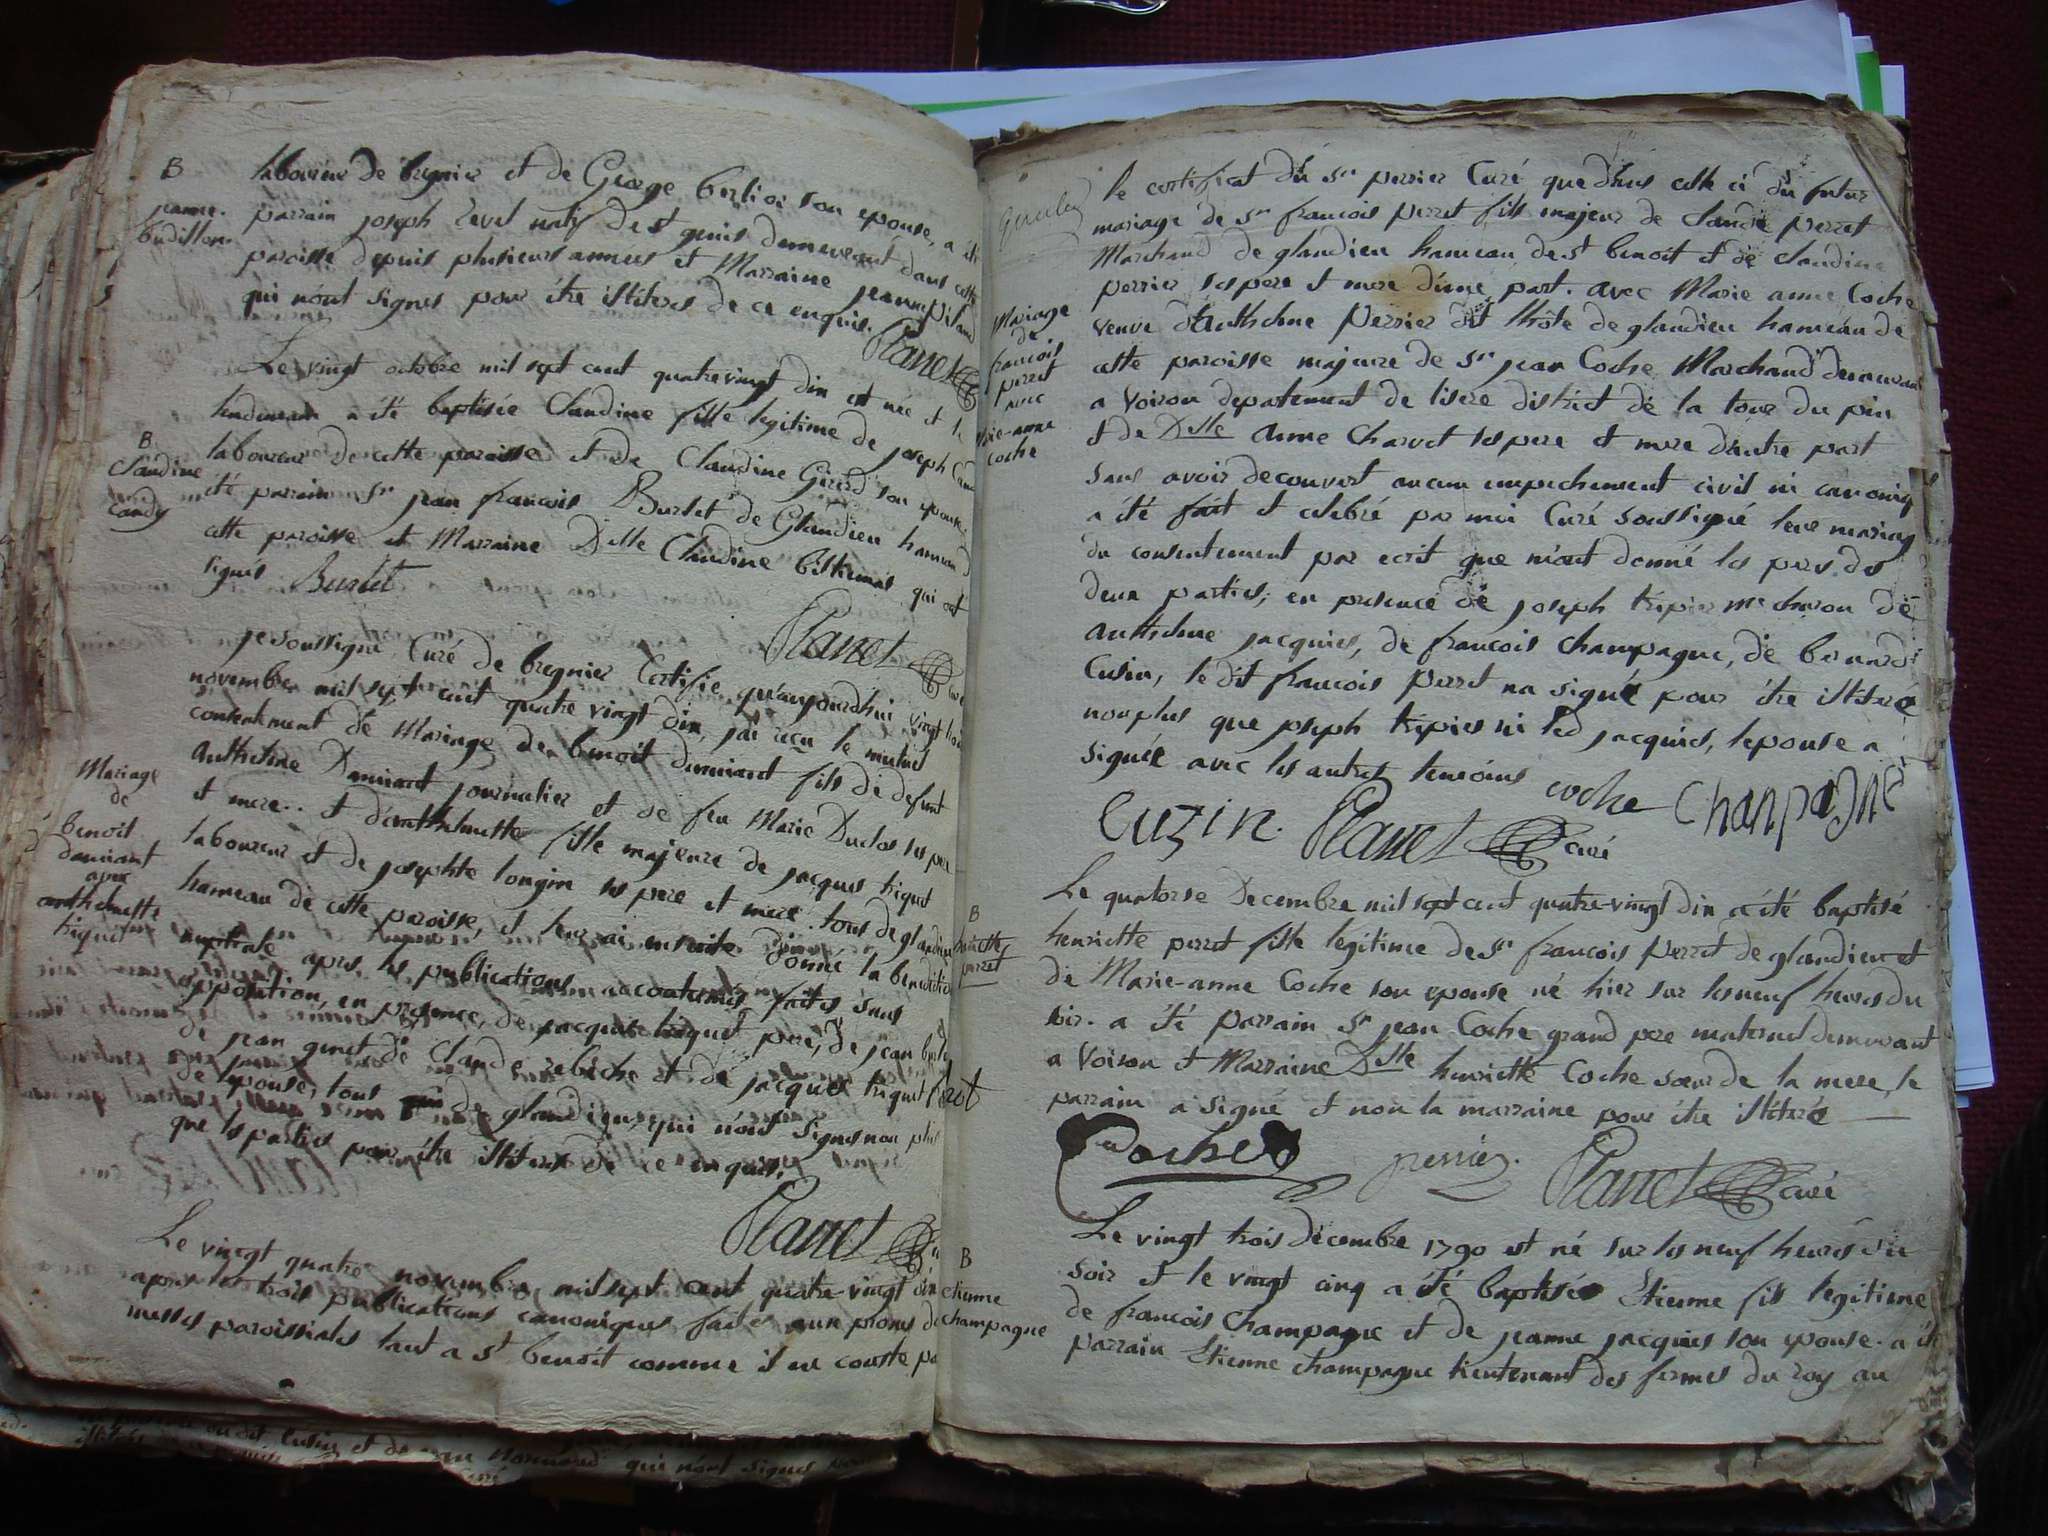 B
jeanne
budillon
laboureur de bregnier et de George berlioz son epouse, a été
parrain joseph revel natif de st genis demeurant dans cette
paroisse depuis plusieurs annees et Marraine jeanne
qui n'ont signes pour être illiteres de ce enquis.
Planet
Le vingt octobre mil sept cent quatre vingt dix est née et le
lendemain a été baptisée Claudine fille legitime de joseph
B
Claudine
candy
laboureur de cette paroisse et de Claudine Girerd son epouse
été parrain sr jean francois Burlet de Glandieu hameau d
cette paroisse et Marraine Delle Claudine qui ont
signés Burlet
Planet
je soussigné Curé de bregnier Certifie qu'aujourdhui vingt
novembre mil sept cent quatre vingt dix, j'ai reçu le mutuel
consentement de Mariage de benoit damiant fils de defunt
Mariage
de
benoit
damiant
avec
anthelmette
triquet
anthelme Damiant journalier et de feu Marie Duclos ses pere
et mere.. et d'anthelmette fille majeure de jacques triquet
laboureur et de josephte longin ses pere et mere tous de glandieu
hameau de cette paroisse, et leur ai ensuite donné la benediction
nuptiale apres les publications accoutumés faites sans
opposition, en presence, de jacques triquet pere, de jean
de jean genet de Claude rebiche et de jacques triquet
de l'epouse, tous de glandieu, qui n'ont signes non plus
que les parties pour être illiteres de ce enquis.
Planet
Le vingt quatre novembre mil sept cent quatre vingt dix
apres les trois publications canoniques faites aux prones de
messes paroissiales tant a st benoit comme il en conste par
le certificat du sr perrier Curé que dans celle ci du futur
mariage de sr francois perret fils majeur de Claude perret
Marchand de glandieu hameau de st benoit et de Claudine
perrier ses pere et mere d'une part. avec Marie anne Coche
Mariage
de
francois
perret
avec
marie-anne
coche
veuve d'Anthelme Perrier dit lhôte de glandieu hameau de
cette paroisse majeure de sr jean Coche Marchand demeurant
a Voiron departement de lisere district de la tour du pin
et de Delle Anne Charvet ses pere et mere d'autre part
sans avoir decouvert aucun empechement civil ni canoniq
a été fait et celebré par moi Curé soussigné leur mariag
du consentement par ecrit que m'ont donné les peres des
deux parties; en presence de joseph tripier me charon de
Anthelme jacquier, de francois Champagne, de bernard
Cusin, le dit francois perret na signé pour être illiteré
nonplus que joseph tripier ni led jacquier, lepouse a
signée avec les autres temoins coche Chanpagne
Cuzin. Planet curé
Le quatorse Decembre mil sept cent quatre-vingt dix a été baptisé
B
henriette
perret
henriette perret fille legitime de sr francois Perret de glandieu et
de Marie-anne Coche son epouse né hier sur les neuf heures du
soir. a été parrain sr jean Coche grand pere maternel demeurant
a Voiron et Marraine Delle henriette Coche sœur de la mere, le
parrain a signé et non la marraine pour être illiterée
Coche perrier. Planet curé
Le vingt trois decembre 1790 est né sur les neuf heures du
B
etienne
champagne
soir et le vingt cinq a été baptisé Etienne fils legitime
de francois Champagne et de jeanne jacquier son epouse. a été
parrain Etienne champagne lieutenant des fermes du roy au